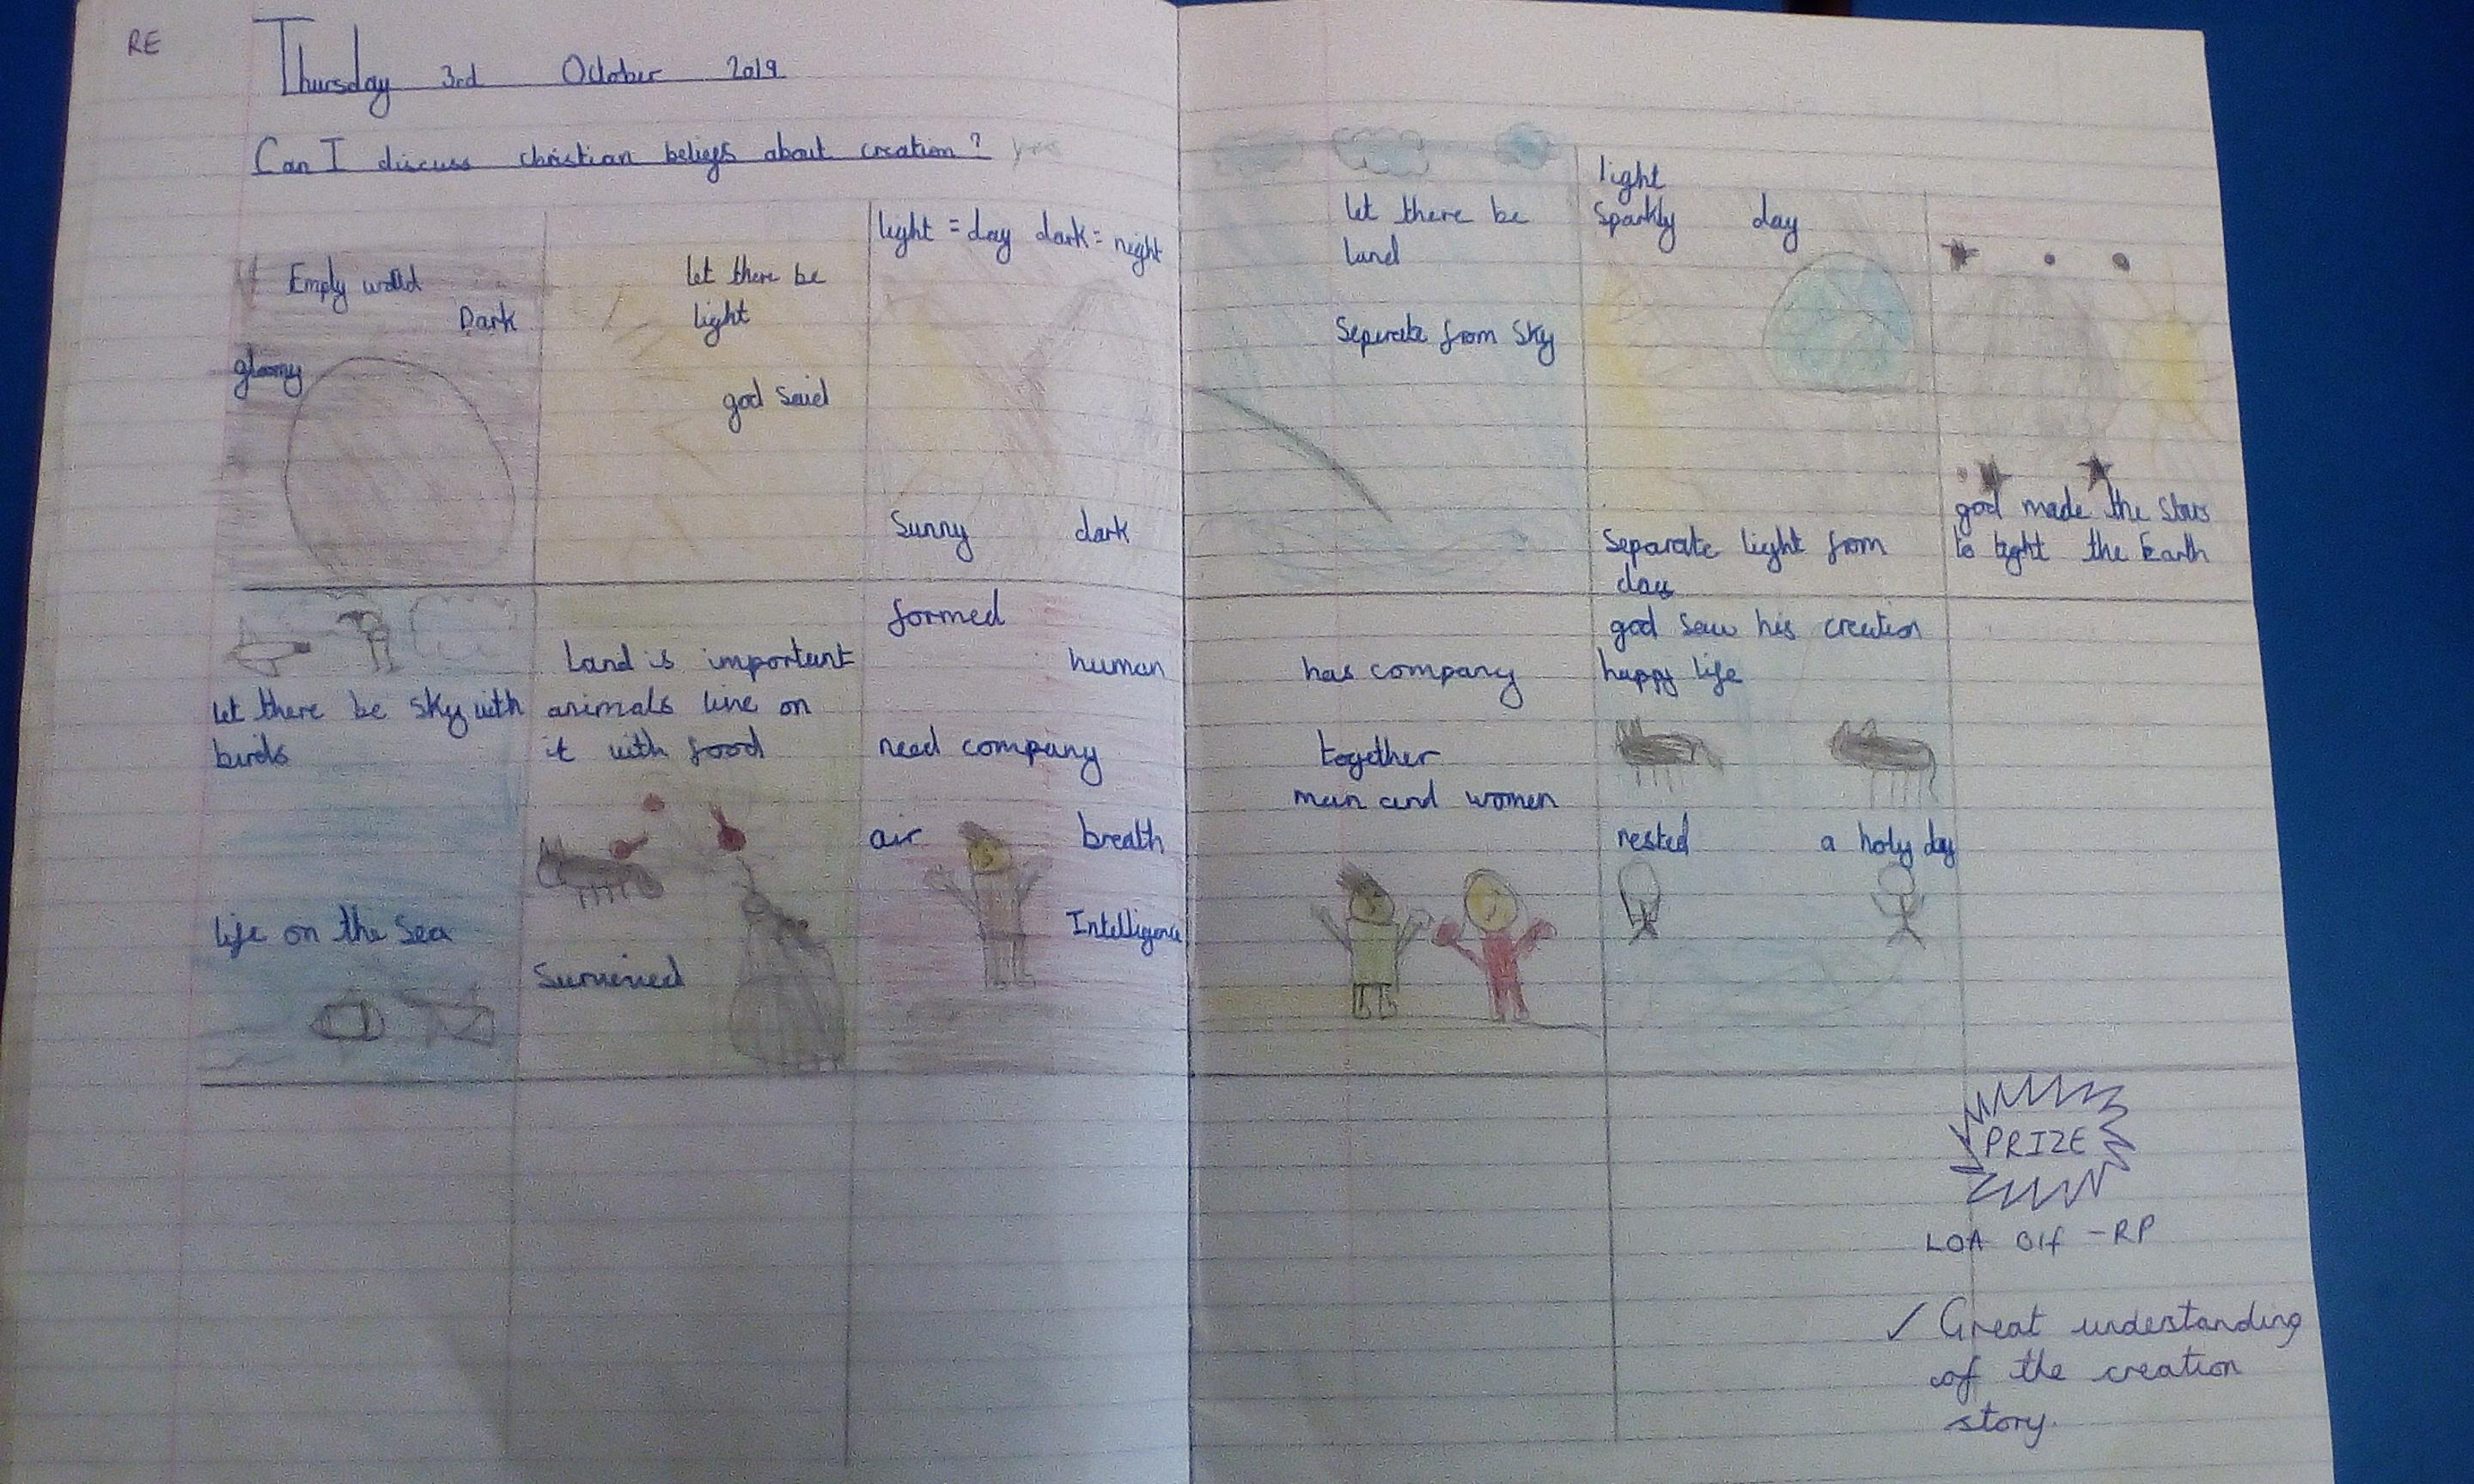 RE
Thursday 3rd October 2019
Can I discuss christian beliefs about creation? yes
Emply world
Dark
gloomy
let there be
light
god said
light = day dark = night
Sunny dark
let there be
land
Seperate from sky
light
sparkly day
Separate light from
day
god made the stars
to light the Earth
let there be sky with
birds
life on the sea
Land is important
animals live on
it with food
Survived
formed
human
need company
air breath
Intelligence
has company
together
man and women
god saw his creation
happy life
rested a holy day
PRIZE
LOA 01f - RP
✓ Great understanding
of the creation
story.